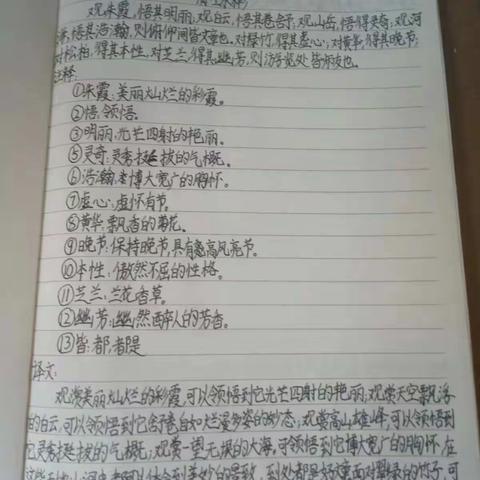 观朱霞,悟其明丽;观白云,悟其卷舒;观山岳,悟得灵奇;观河
海,悟其浩瀚,则俯仰间皆文章也。对绿竹,得其虚心;对黄华,得其晚节;
对松柏,得其本性;对芝兰,得其幽芳,则游览处皆师友也。
注释:
①朱霞:美丽灿烂的彩霞。
②悟:领悟。
③明丽:光芒四射的艳丽。
⑤灵奇:灵秀挺拔的气概。
⑥浩瀚:博大宽广的胸怀。
⑦虚心:虚怀有节。
⑧黄华:飘香的菊花。
⑨晚节:保持晚节,具有高风亮节。
⑩本性:傲然不屈的性格。
⑪芝兰:兰花香草。
⑫幽芳:幽然醉人的芳香。
⑬皆:都,都是
译文:
观赏美丽灿烂的彩霞,可以领悟到它光芒四射的艳丽;观赏天空飘浮
的白云,可以领悟到它舒卷自如烂漫多姿的妙态;观赏高山雄峰,可以领悟到
它灵秀挺拔的气概;观赏一望无垠的大海,可领悟到它博大宽广的胸怀。在
这些天地山河中都可以体会到美妙的景致,到处都是好文章。面对翠绿的竹子,可